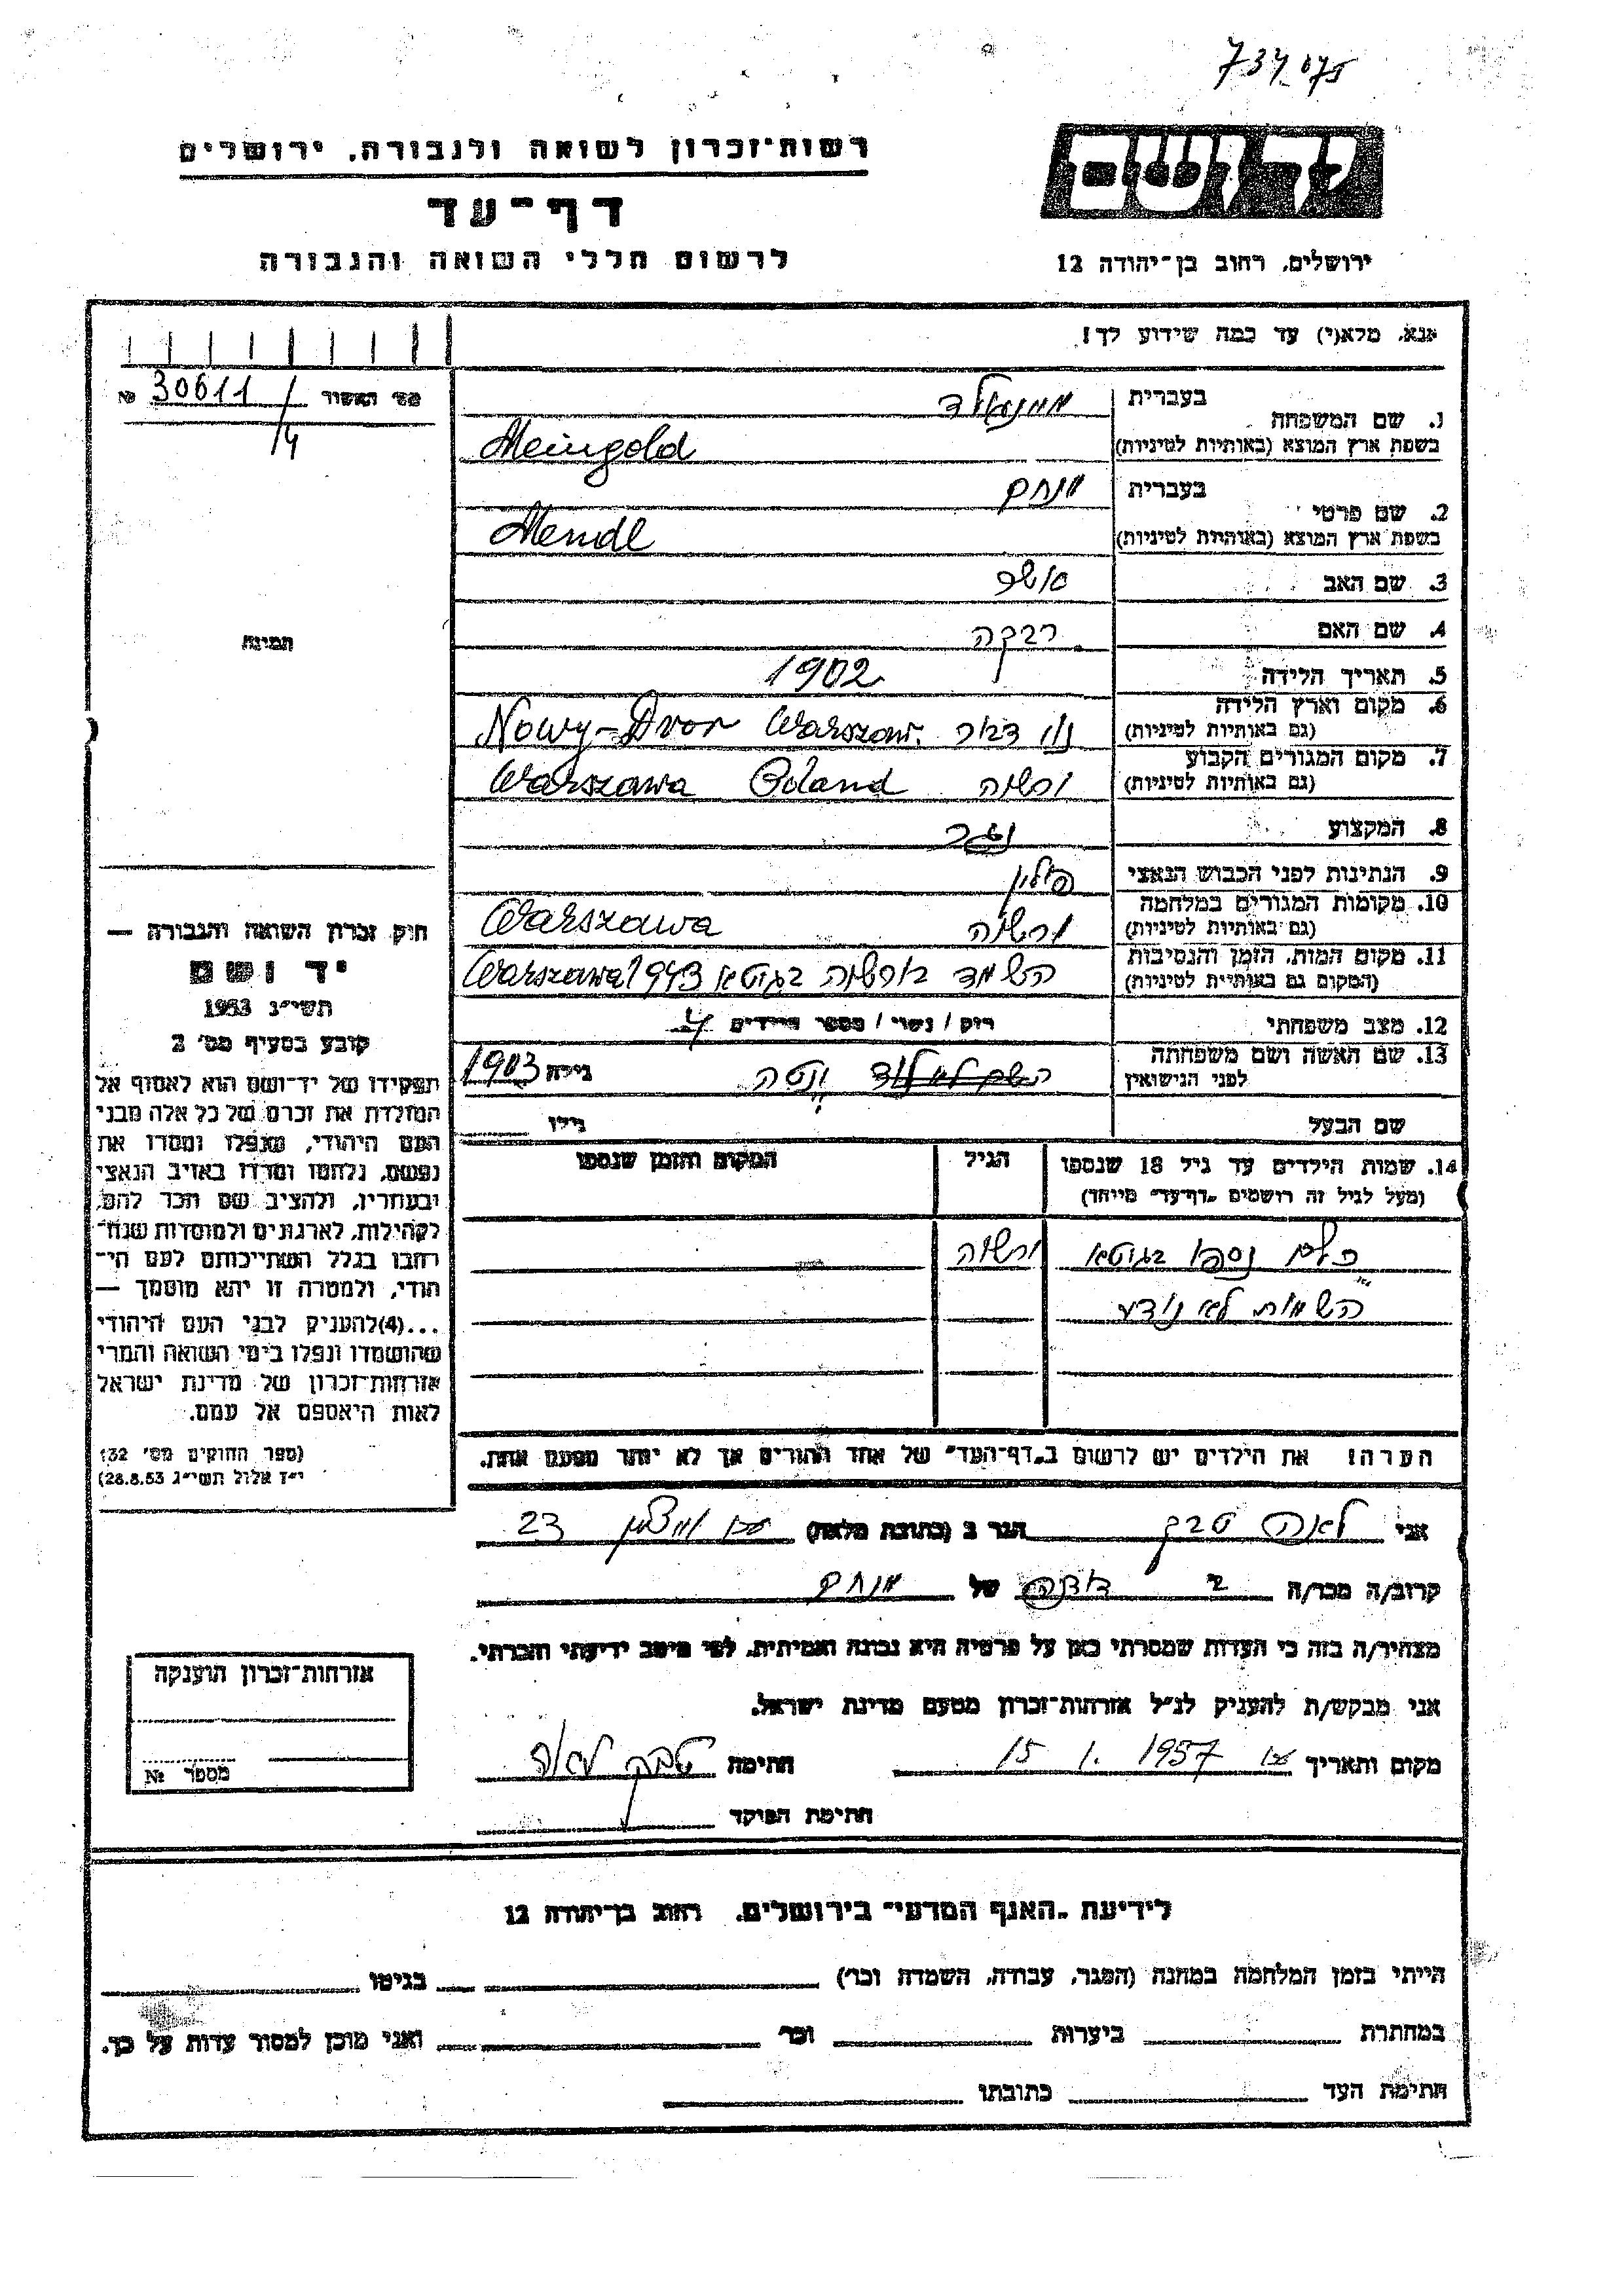 רשות־זכרון לשואה ולגבורה, ירושלים
דף־עד
לרשום חללי השואה והגבורה
יד ושם
ירושלים, רחוב בן־יהודה 12
אנא, מלא(י) עד כמה שידוע לך!
מס' האשור 30611/4 №
1. שם המשפחה
בעברית
בשפת ארץ המוצא (באותיות לטיניות) Meingold
2. שם פרטי
בעברית מנחם
בשפת ארץ המוצא (באותיות לטיניות) Mendl
3. שם האב
4. שם האם רבקה
5. תאריך הלידה 1902
6. מקום וארץ הלידה
(גם באותיות לטיניות) Nowy-Dvor Warszaw.
7. מקום המגורים הקבוע
(גם באותיות לטיניות) ורשה Warszawa Poland
8. המקצוע נגר
9. הנתינות לפני הכבוש הנאצי פולין
10. מקומות המגורים במלחמה
(גם באותיות לטיניות) ורשה Warszawa
11. מקום המות, הזמן והנסיבות
(המקום גם באותיות לטיניות) הושמד בורשה בגיטא Warszawa 1943
12. מצב משפחתי רוק / נשוי / מספר הילדים 4
13. שם האשה ושם משפחתה
לפני הנישואין גילה 1903
שם הבעל גילו
14. שמות הילדים עד גיל 18 שנספו
(מעל לגיל זה רושמים "דף־עד" מיוחד)
הגיל
המקום והזמן שנספו
כולם נספו בגיטא ורשה
השמות לא נודע
הערה! את הילדים יש לרשום ב"דף־העד" של אחד ההורים אך לא יותר מפעם אחת.
תמונה
חוק זכרון השואה והגבורה —
יד ושם
תשי"ג 1953
קובע בסעיף מס' 2
תפקידו של יד־ושם הוא לאסוף אל
המולדת את זכרם של כל אלה מבני
העם היהודי, שנפלו ומסרו את
נפשם, נלחמו ומרדו באויב הנאצי
ובעוזריו, ולהציב שם וזכר להם,
לקהילות, לארגונים ולמוסדות שנח־
רבו בגלל השתייכותם לעם הי־
הודי, ולמטרה זו יהא מוסמך —
...(4)להעניק לבני העם היהודי
שהושמדו ונפלו בימי השואה והמרי
אזרחות־זכרון של מדינת ישראל
לאות היאספם אל עמם.
(ספר החוקים מס' 132
י"ז אלול תשי"ג 28.8.53)
אני לאה טבק הגר ב (כתובת מלאה) 23
קרוב/ה מכר/ה של מנחם
מצהיר/ה בזה כי העדות שמסרתי כאן על פרטיה היא נכונה ואמיתית, לפי מיטב ידיעתי והכרתי.
אני מבקש/ת להעניק לנ"ל אזרחות־זכרון מטעם מדינת ישראל.
מקום ותאריך 15 1. 1957 חתימה טבק לאה
חתימת הפוקד
אזרחות־זכרון הוענקה
מספר №
לידיעת "האגף המדעי" בירושלים, רחוב בן־יהודה 12
הייתי בזמן המלחמה במחנה (הסגר, עבודה, השמדה וכו') בגיטו
במחתרת ביערות וכו' ואני מוכן למסור עדות על כך.
חתימת העד כתובתו